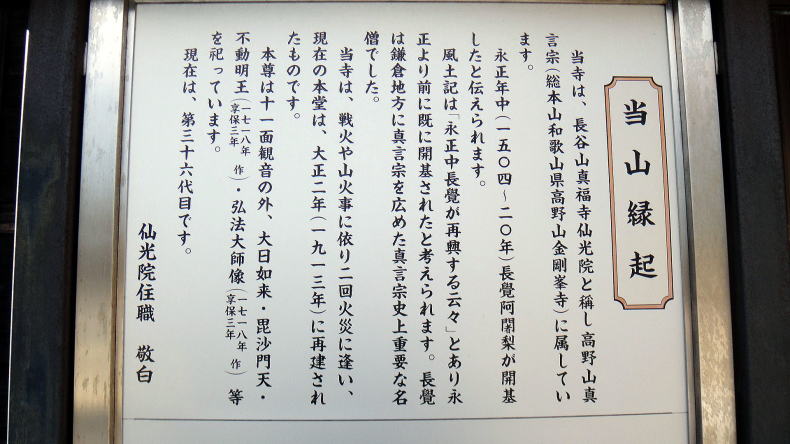 当山縁起
当寺は、長谷山真福寺仙光院と稱し高野山真
言宗(総本山和歌山県高野山金剛峯寺)に属してい
ます。
永正年中(一五〇四～二〇年)長覺阿闍梨が開基
したと伝えられます。
風土記は「永正中長覺が再興する云々」とあり永
正より前に既に開基されたと考えられます。長覺
は鎌倉地方に真言宗を広めた真言宗史上重要な名
僧でした。
当寺は、戦火や山火事に依り二回火災に逢い、
現在の本堂は、大正二年(一九一三年)に再建され
たものです。
本尊は十一面観音の外、大日如来・毘沙門天・
不動明王(一七一八年 享保三年 作)・弘法大師像(一七一八年 享保三年 作)等
を祀っています。
現在は、第三十六代目です。
仙光院住職 敬白